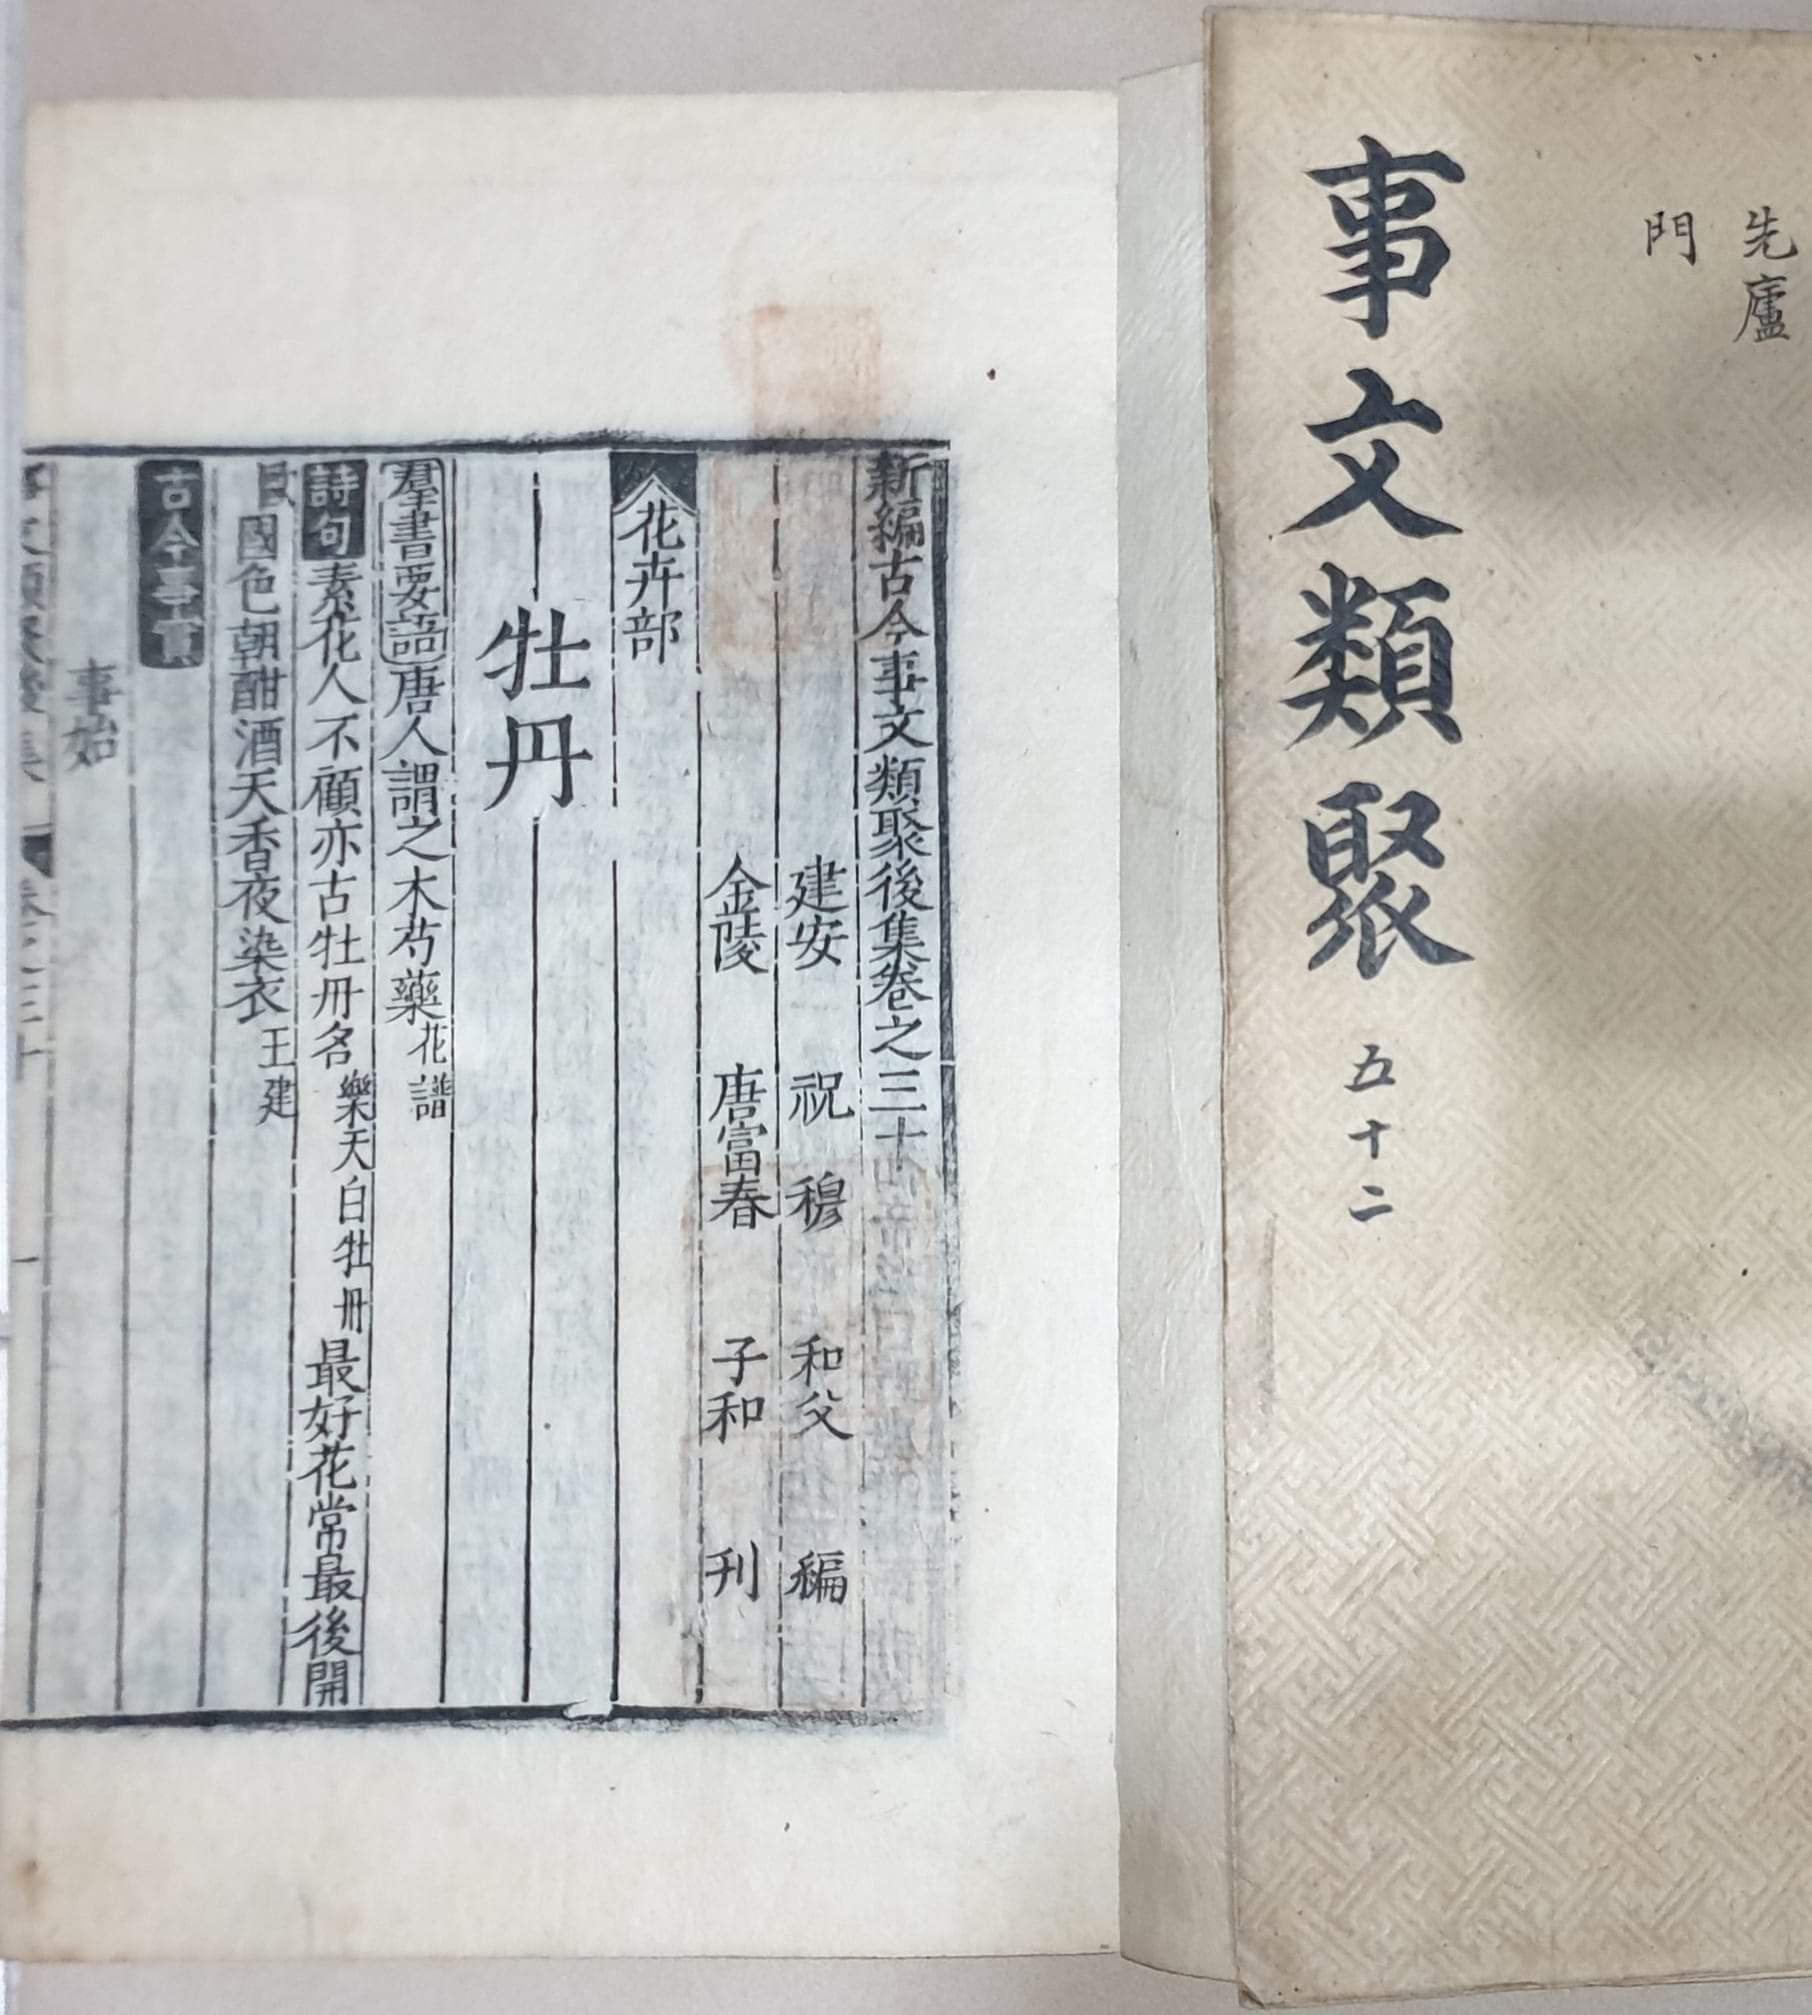 先廬
門
事文類聚 五十二
新編古今事文類聚後集卷之三十
建安 祝 穆 和父 編
金陵 唐富春 子和 刊
花卉部
牡丹
羣書要語唐人謂之木芍藥花譜
詩句素花人不顧亦古牡丹名樂天白牡丹最好花常最後開
國色朝酣酒天香夜染衣王建
古今事實
事始